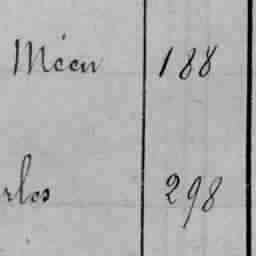 Méen 188
rlos 298